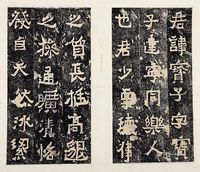 君諱寶子字寶
子建寧同樂人
也君少稟瓌偉
之質長挺高邈
之操通曠清恪
發自天然冰絜